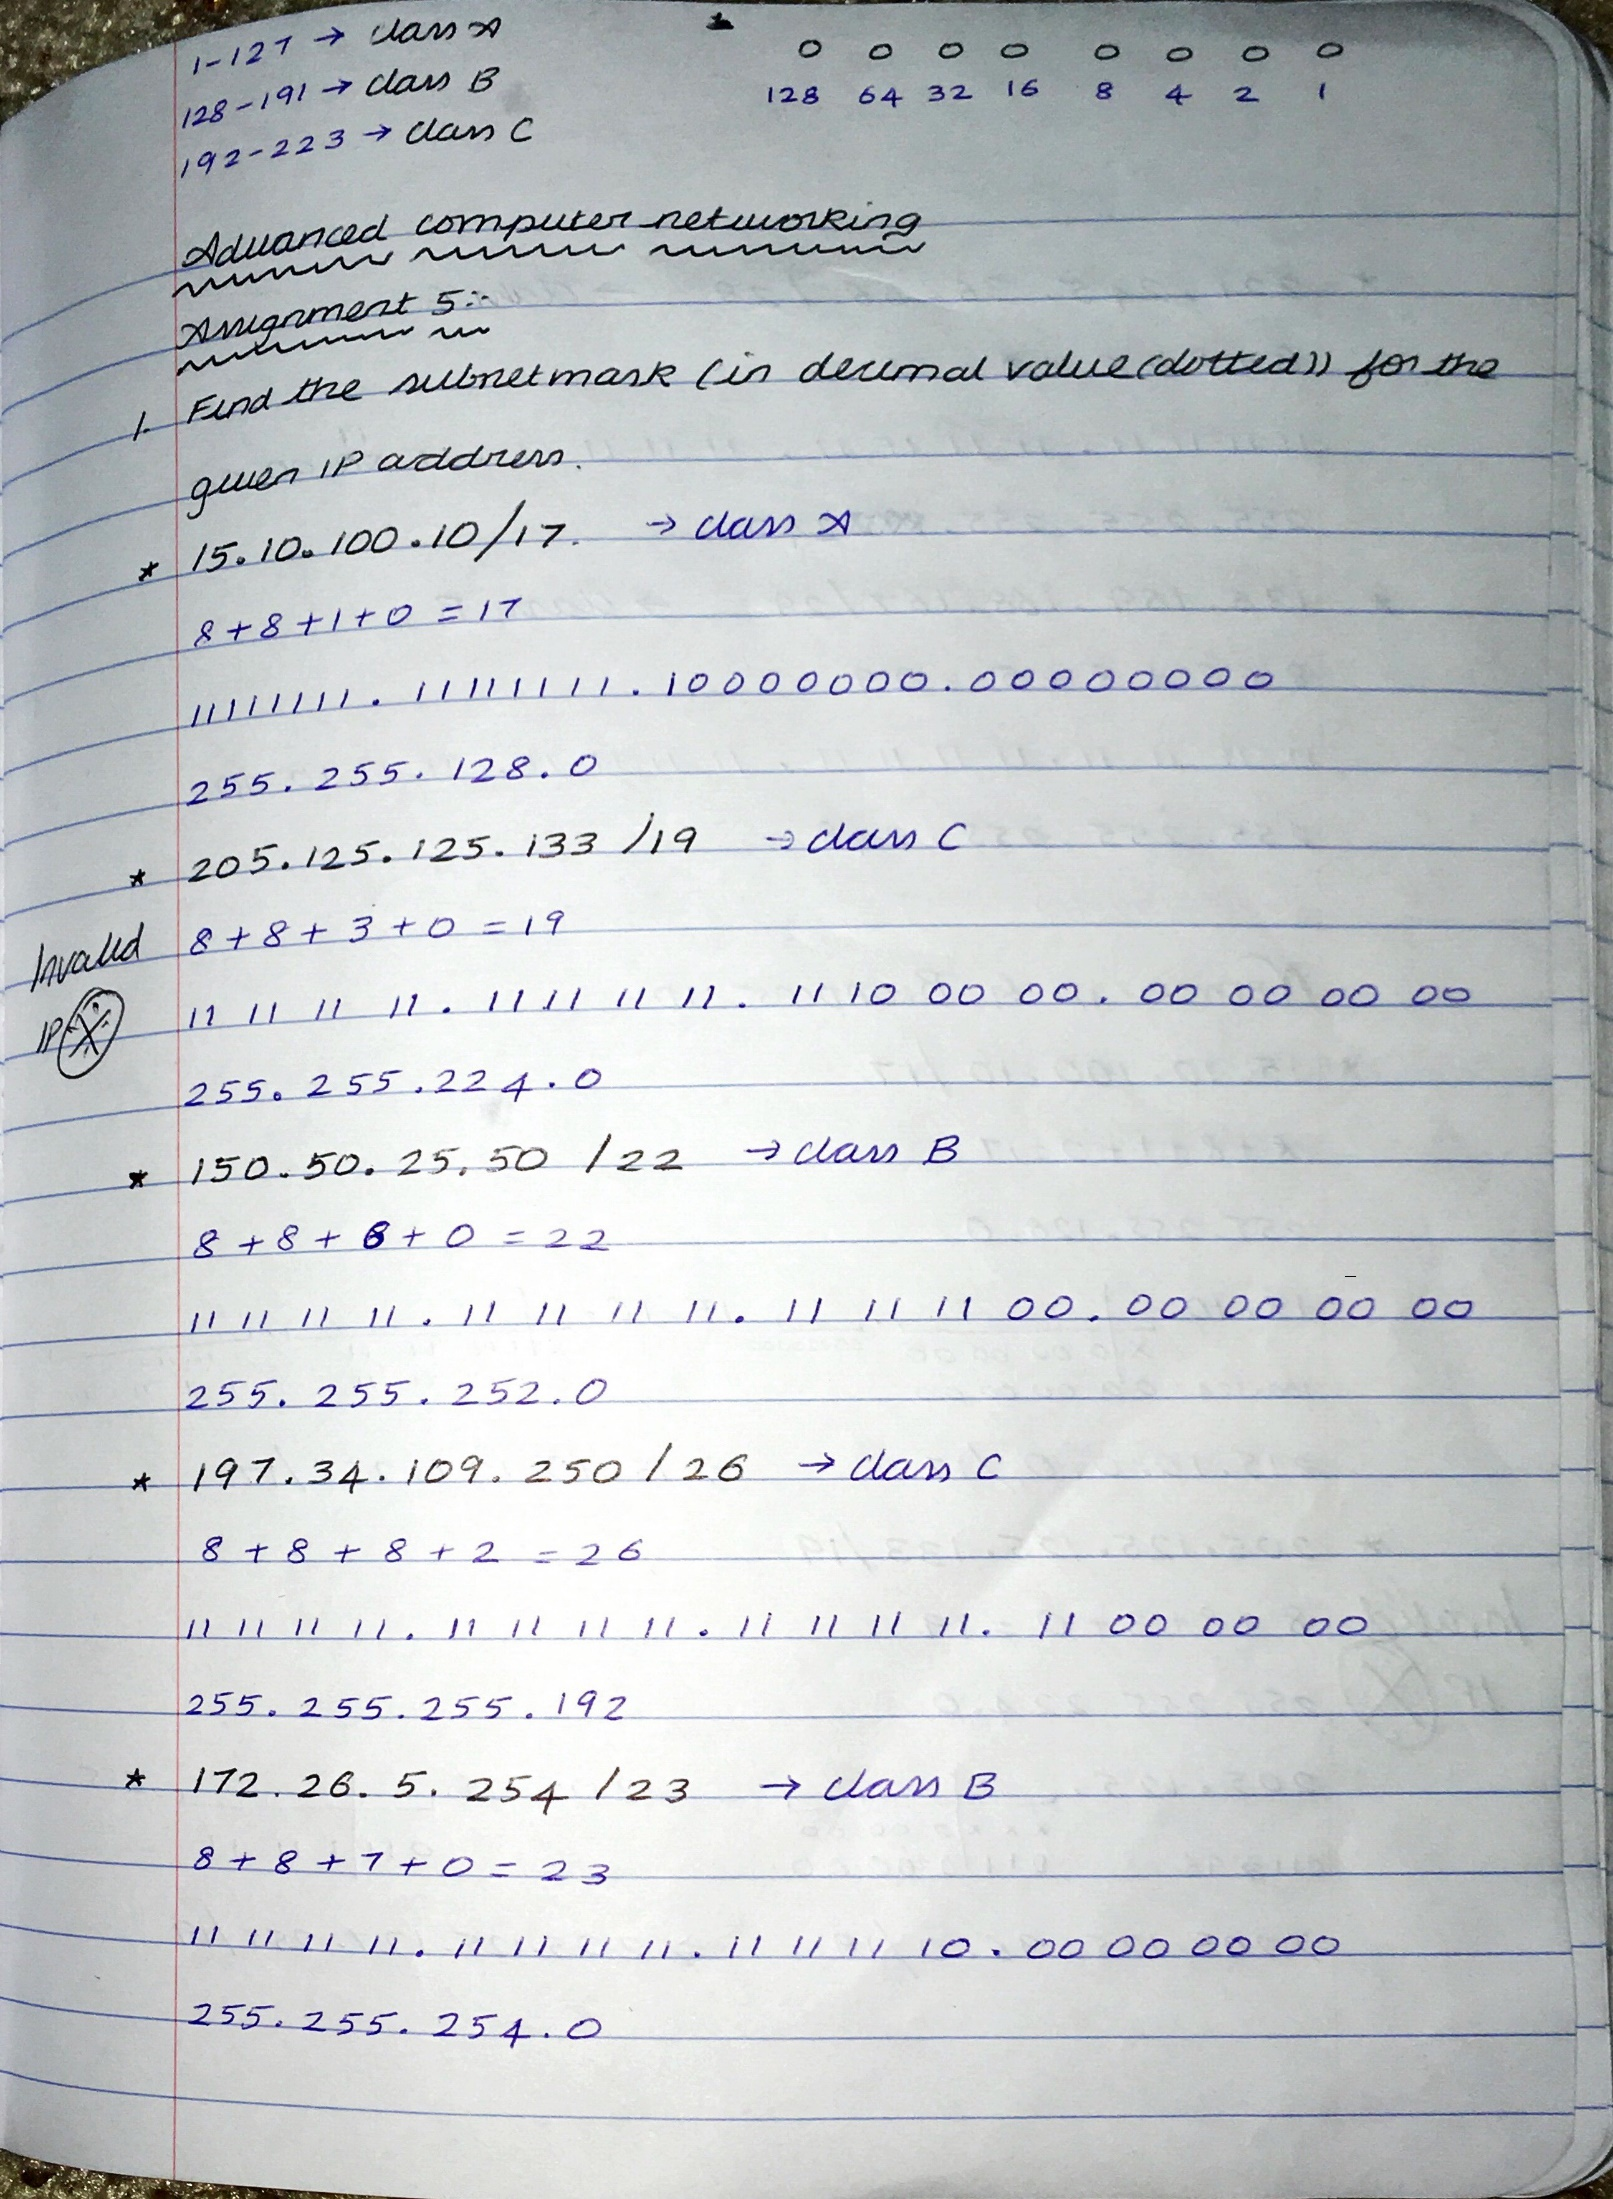 1-127 → class A
128-191 → class B
192-223 → class C
0 0 0 0 0 0 0 0
128 64 32 16 8 4 2 1
Advanced computer networking
Assignment 5:-
1. Find the subnetmask (in decimal value(dotted)) for the
given IP address.
* 15.10.100.10/17. → class A
8+8+1+0 = 17
11111111.11111111.10000000.00000000
255.255.128.0
* 205.125.125.133 /19 → class C
Invalid
IP
8+8+3+0 = 19
11 11 11 11 . 11 11 11 11 . 11 10 00 00 . 00 00 00 00
255.255.224.0
* 150.50.25.50 /22 → class B
8+8+6+0 = 22
11 11 11 11 . 11 11 11 11 . 11 11 11 00 . 00 00 00 00
255.255.252.0
* 197.34.109.250 / 26 → class C
8+8+8+2 = 26
11 11 11 11 . 11 11 11 11 . 11 11 11 11 . 11 00 00 00
255.255.255.192
* 172.26.5.254 /23 → class B
8+8+7+0 = 23
11 11 11 11 . 11 11 11 11 . 11 11 11 10 . 00 00 00 00
255.255.254.0